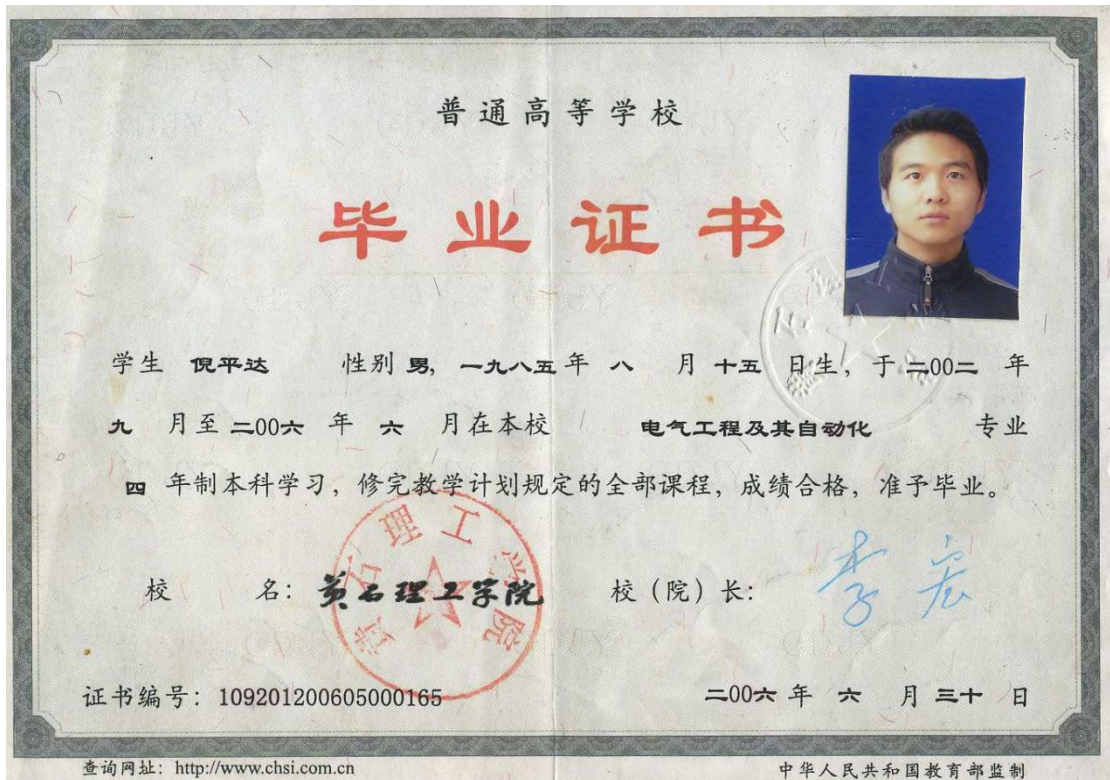 普通高等学校
毕业证书
学生 倪平达 性别 男, 一九八五 年 八 月 十五 日生, 于 二00二 年
九 月至 二00六 年 六 月在本校 电气工程及其自动化 专业
四 年制本科学习, 修完教学计划规定的全部课程, 成绩合格, 准予毕业。
校 名: 黄石理工学院 校(院)长: 李宏
黄石理工学院
证书编号: 109201200605000165 二00六 年 六 月 三十 日
查询网址: http://www.chsi.com.cn 中华人民共和国教育部监制